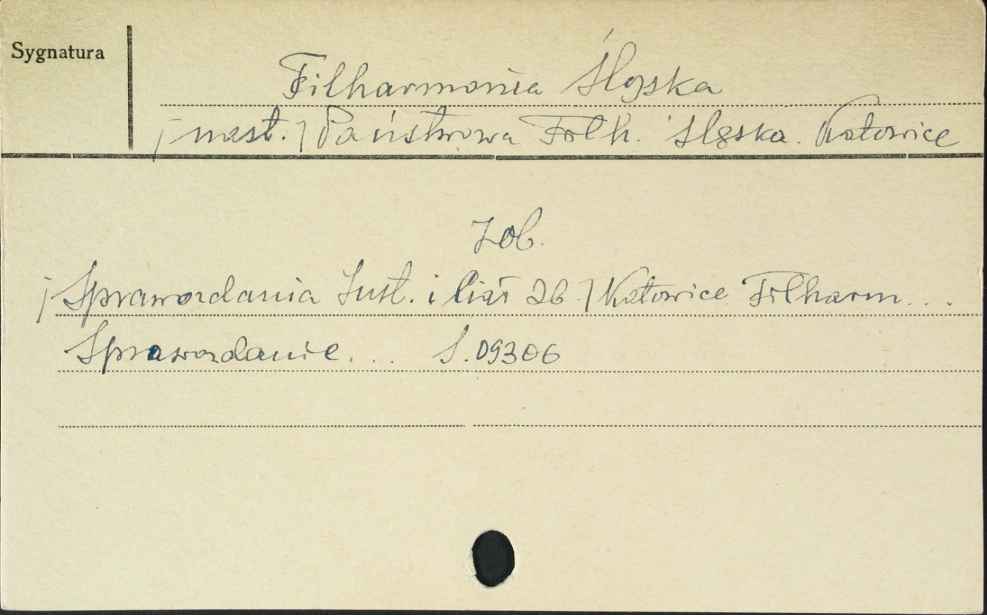 Sygnatura
Filharmonia Śląska
/nast./ Państwowa Filh. Śląska. Katowice
Zob.
/Sprawozdania Inst. i 26/ Katowice Filharm...
Sprawozdanie... S.09306